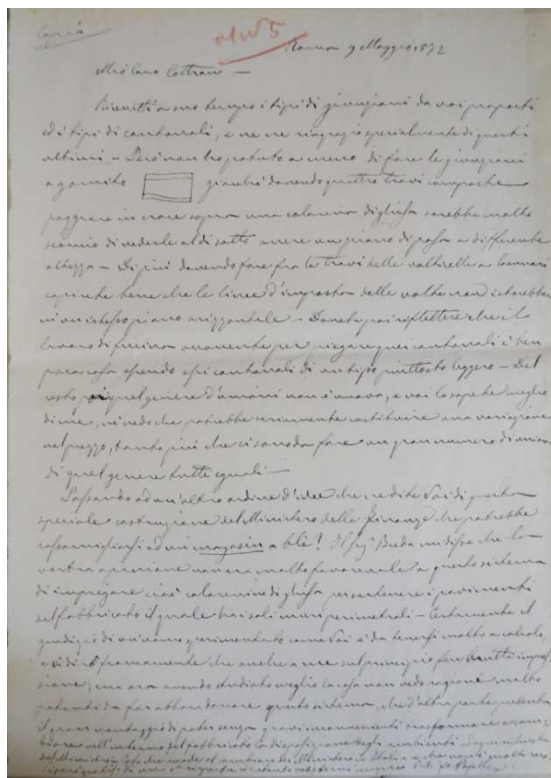 Copia
Roma 9 Maggio 1872
Mio Caro Cottrau —
Ricevetti a suo tempo i tipi di giunzioni da voi proposti
ed i tipi di cantonali, e ve ne ringrazio specialmente di questi
ultimi — Però non ho potuto a meno di fare le giunzioni
a gomito giacché dovendo quattro travi composte
poggiare in croce sopra una colonnina di ghisa sarebbe molto
sconcio di vederle al di sotto avere un piano di posa a differente
altezza — Di più dovendo fare fra le travi delle volticelle
capirete bene che le linee d'imposta delle volte non istarebbero
in un istesso piano orizzontale — Dovete poi riflettere che il
lavoro di fucina occorrente per piegare quei cantonali è ben
poca cosa essendo essi cantonali di un tipo piuttosto leggero — Del
resto quel genere d'unioni non è nuovo, e voi lo sapete meglio
di me, né vedo che potrebbe seriamente costituire una variazione
nel prezzo, tanto più che ci sono da fare un gran numero di unioni
di quel genere tutte eguali —
Passando ad un altro ordine d'idee che ne dite Voi di questa
speciale costruzione del Ministero delle Finanze che potrebbe
rassomigliarsi ad un magasin a blé? Il Sig. Breda mi disse che la
vostra opinione non era molto favorevole a questo sistema
di impiegare cioè colonnine di ghisa per sostenere i pavimenti
del fabbricato il quale ha i soli muri perimetrali — Certamente il
giudizio di un uomo sperimentato come Voi è da tenersi molto a calcolo,
e vi dirò francamente che anche a me sul principio fece brutta impres-
sione; ma ora avendo studiato meglio la cosa non vedo ragioni molto
potenti da far abbandonare questo sistema, che d'altra parte presenta
il gran vantaggio di poter senza gravi inconvenienti trasformare e cam-
biare nell'interno del fabbricato la disposizione degli ambienti